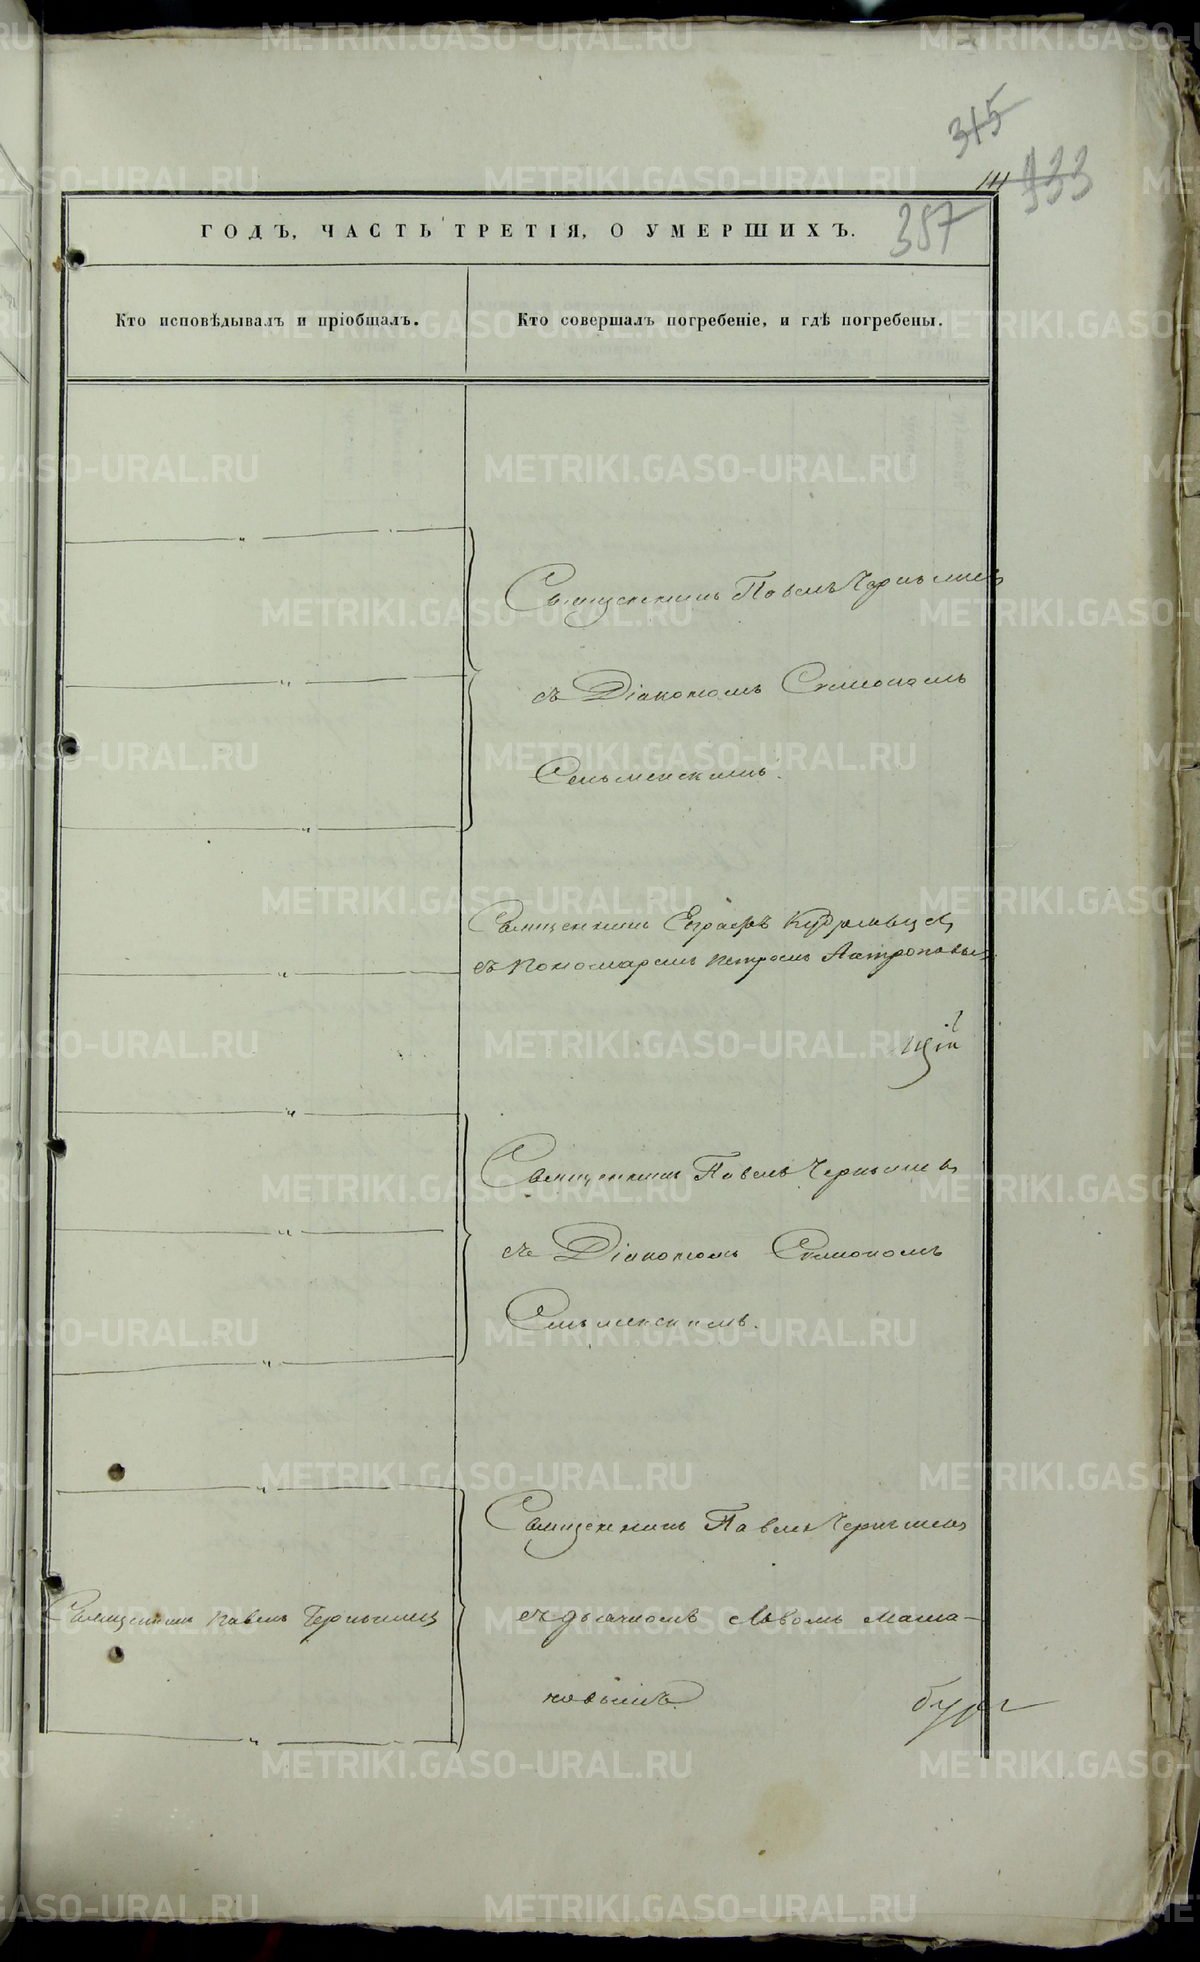 315
141 933
ГОДЪ, ЧАСТЬ ТРЕТІЯ, О УМЕРШИХЪ. 357
Кто исповѣдывалъ и пріобщалъ. Кто совершалъ погребеніе, и гдѣ погребены.
Священникъ Павелъ Чернышевъ
съ Діакономъ Симеономъ
Сельменскимъ.
Священникъ Евграфъ Кудрявцев
съ Пономаремъ Петромъ Антроповым
Священникъ Павелъ Чернышевъ
съ Діакономъ Симеономъ
Сельменскимъ.
Священникъ Павелъ Чернышевъ
Священникъ Павелъ Чернышевъ съ дьячкомъ Львомъ Мама-
новымъ
METRIKI.GASO-URAL.RU